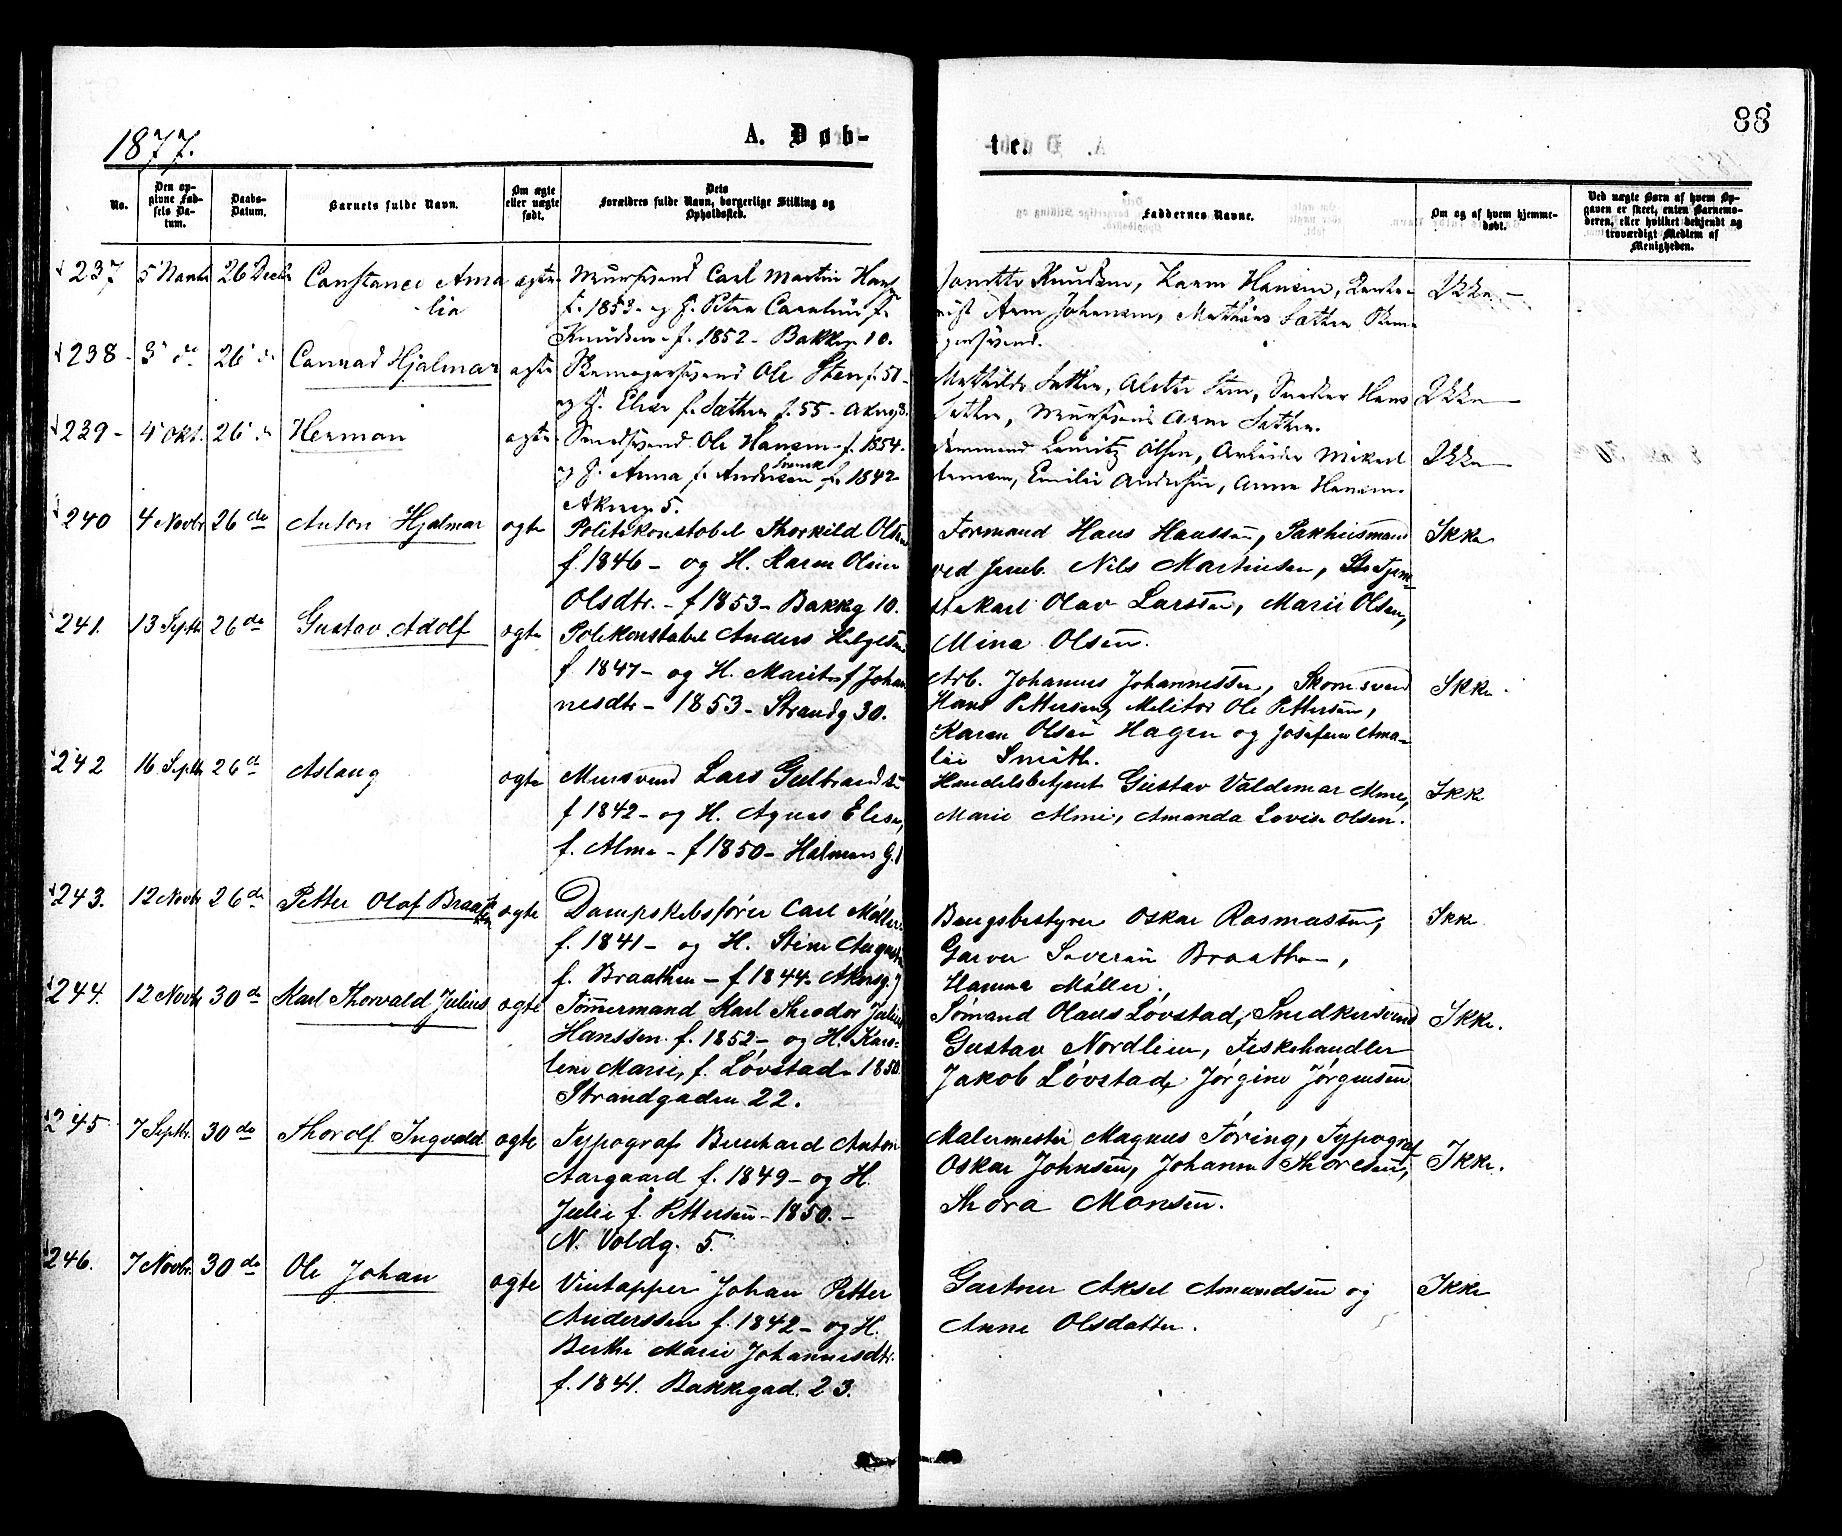 1877.
A. Døb-
No.
Den op-
givne Fød-
sels Da-
tum.
Daabs-
Datum.
Barnets fulde Navn.
Om ægte
eller uægte
født.
Dets
Forældres fulde Navn, borgerlige Stilling og
Opholdssted.
237 5 26 Decbr Constance Ama ægte Mursvend Carl Martin Hans
lia f. 1853 - og H. Petra Caroline f.
Knudsen f. 1852 - Bakkeg 10.
238 - 3 do 26 do Conrad Hjalmar ægte Ole Sten f. 51 -
og H. Elise f. Sæthre f. 55 - Akersg
239 - 4 Okt. 26 do Herman ægte Smedsvend Ole Hansen f. 1854.
og H. Anna f. Andersen f. 1842
Akersg 5.
240 4 Novbr 26 do Anton Hjalmar ægte Politikonstabel Thorkild Olsen
f. 1846 - og H. Karen Oline
Olsdtr. - f 1853 - Bakkg 10.
241. 13 Septbr 26 do Gustav Adolf ægte Polikonstabel Anders Helgesen
f. 1847 - og H. Marit f Johan
nesdtr - 1853 - Strandg 30.
242 16 Septbr 26 d Aslaug ægte Mursvend Lars Gulbrandsen
f 1842 - og H. Agnes Elise,
f. Alme - f 1850 - Holmens G.
243. 12 Novbr 26 do Petter Olaf Braathen ægte Dampskibsfører Carl Møller
f. 1841 - og H. Stine Auguste
f. Braathen - f 1844. Akersg.
244. 12 Novbr 30 d Karl Thorvald Julius ægte Tømmermand Karl Theodor Julius
Hanssen f. 1852 - og H. Karo-
line Marie, f. Løvstad 1850.
Strandgaden 22.
245 7 Septbr. 30 do Thorolf Ingvald ægte Typograf Bernhard Anton
Aargaard f. 1849 - og H.
Julie f. Pettersen - 1850. -
N. Voldg. 5.
246. 7 Novbr. 30 do Ole Johan ægte Vintapper Johan Petter
Anderssen f. 1842 - og H.
Berthe Marie Johannesdtr.
f. 1841. Bakkegad. 23.
88
te.
Faddernes Navne.
Om og af hvem hjemme-
døbt.
Ved uægte Børn af hvem Op-
gaven er skeet, enten Barnemo-
deren, eller hvilket bekjendt og
troværdigt Medlem af
Menigheden.
Knudsen, Karen Hansen, Ikke -
Arne Johansen, Mathias Sæthre
Mathilde Sæthre, Sten, Snedker Hans Ikke -
Sæthre, Mursvend Arne Sæthre.
Olsen, Arbeider Mikael Ikke -
Emilie Andersen, Anna Hansen.
Formand Hans Hanssen, Pakhusmand Ikke
ved Jernb. Nils Martinsen,
Olav Larsen, Marie Olsen,
Mina Olsen.
Arb. Johannes Johannessen, Skomsvend Ikke.
Hans Pettersen, Melitær Ole Pettersen,
Karen Olsen Hagen og Josefine Ama-
lie Smith.
Handelsbetjent Gustav Valdemar Alme, Ikke
Marie Alme, Amanda Lovise Olsen.
Brugsbestyrer Oskar Rasmussen, Ikke
Garver Severin Braathen,
Hanna Møller.
Sømand Olaus Løvstad, Snedkersvend Ikke.
Gustav Nordlien, Fiskehandler
Jakob Løvstad, Jørgine Jørgensen
Malermester Magnus Tøring, Typograf Ikke.
Oskar Johnsen, Johanne Thoresen,
Thora Monsen.
Gartner Aksel Amundsen og Ikke
Anne Olsdatter.